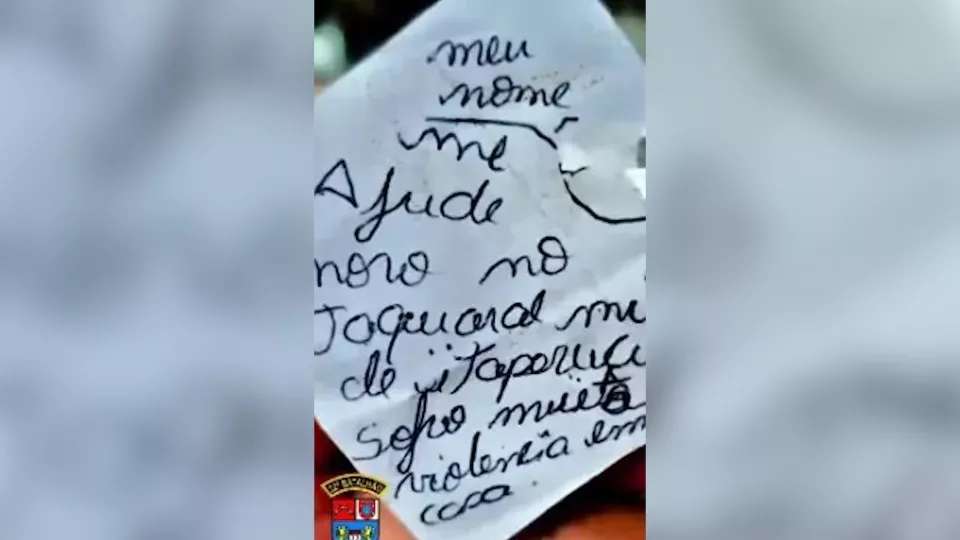 meu
nome
me
Ajude
moro no
Taquaral mu
de itaperuçu
sofro muito
violencia em
casa.